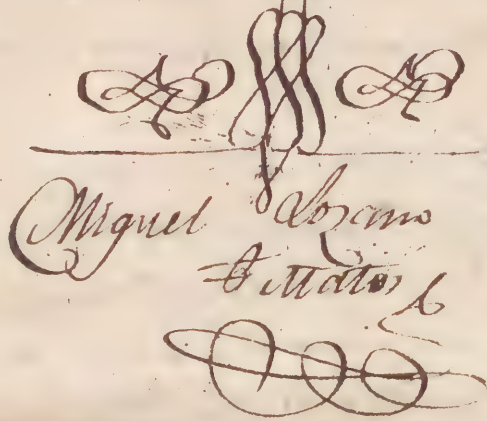 Miguel Lozano
Matos